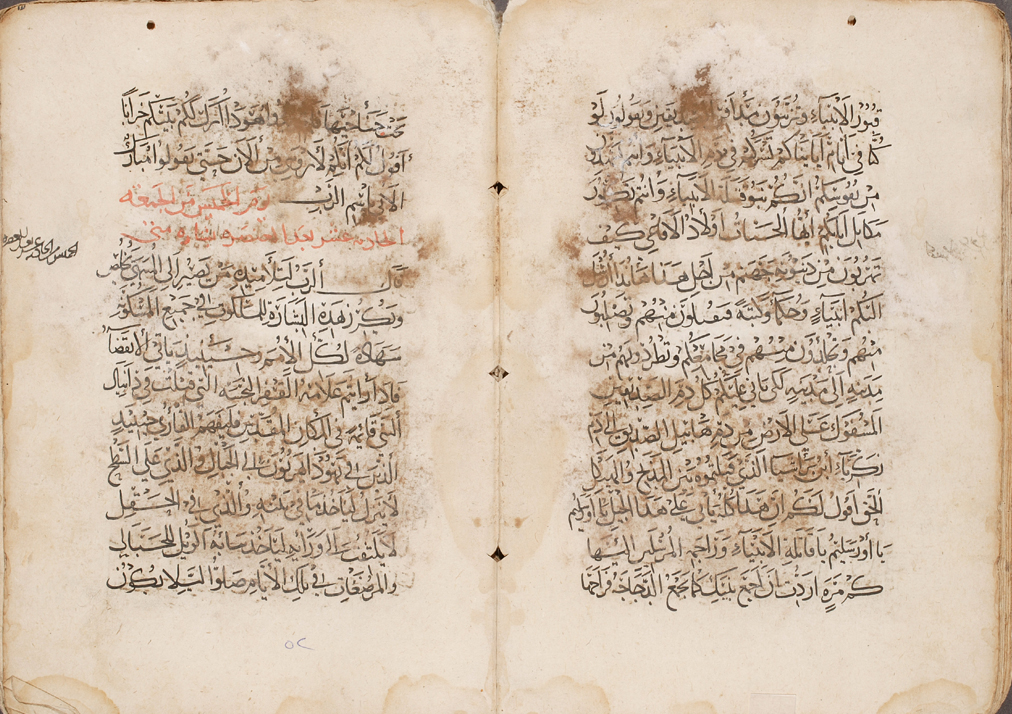 قبور الانبياء وتزينون مدافن الصديقين وتقولون لو
كنا في ايام ابائنا كم لم نشركهم في دم الانبياء وانتم تشهدون
من نفوسكم انكم بنو قتلة الانبياء وانتم تكملون
مكيال ابائكم ايها الحيات اولاد الافاعي كيف
تهربون من دينونة جهنم من اجل هذا هانذا ارسل
اليكم انبياء وحكما وكتبة فتقتلون منهم وتصلبون
منهم وتجلدون منهم في مجامعكم وتطردونهم من
مدينه الى مدينه لكي ياتي عليكم كل دم الصديقين
المسفوك على الارض من دم هابيل الصديق الى دم
زكريا ابن براشيا الذي قتلتموه بين المذبح والهيكل
الحق اقول لكم ان هذا كله ياتي على هذا الجيل يا اورشليم
يا اورشليم يا قاتلة الانبياء وراجمه المرسلين اليها
كم مرة اردت ان اجمع بنيك كما تجمع الدجاجه فراخها
تحت جناحيها فلم تريدوا هوذا اترك لكم بيتكم خرابا
اقول لكم انكم لا تروني من الان حتى تقولوا مبارك
الاتي باسم الرب يوم الخميس من الجمعه
الحاديه عشر بعد العنصره بشارة متى
قال الرب لتلاميذه من يصبر الى المنتهى يخلص
ويكرز بهذه البشارة للملكوت في جميع المسكونة
شهادة لكل الامم وحينيذ ياتي الانقضا
فاذا رايتم علامه القفر النجسه التي قيلت في دانيال
النبي قايمه في المكان المقدس فليفهم القاري حينيذ
الذين في يهودا يهربون الى الجبال والذي على السطح
لا ينزل لياخذ ما في بيته والذي في الحقل
لا يلتفت الى ورايه لياخذ ثيابه الويل للحبالى
والمرضعات في تلك الايام صلوا ليلا يكون